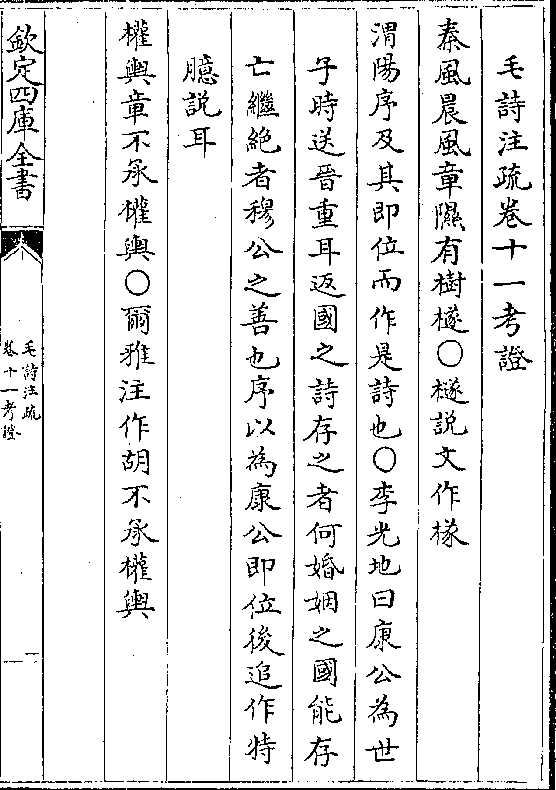 毛詩注疏卷十一考證
秦風晨風章隰有樹檖〇檖説文作㯌
渭陽序及其即位而作是詩也〇李光地曰康公為世
子時送晉重耳返國之詩存之者何婚姻之國能存
亡繼絶者穆公之善也序以為康公即位後追作特
臆説耳
權輿章不承權輿〇爾雅注作胡不承權輿
欽定四庫全書
毛詩注疏
卷十一考證
一